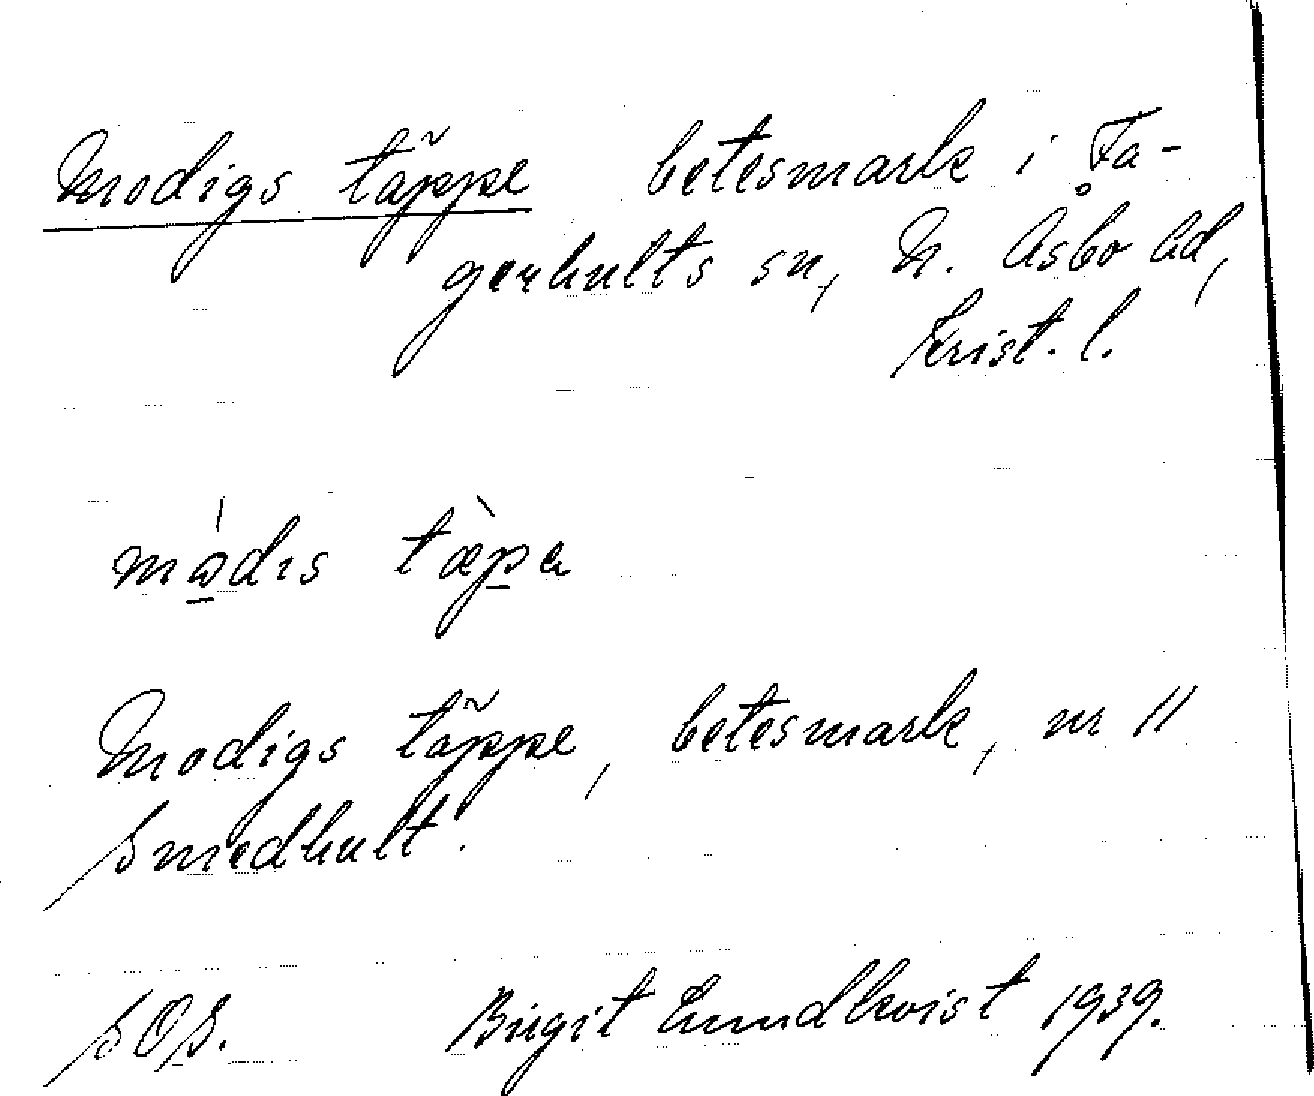 Modigs täppe betesmark i Fa-
gerhults sn, N. Åsbo hd,
Krist. l.
mó̱dɩs tæ̀p̱a
Modigs täppe, betesmark, nr 11
Smedhult.
SOS. Birgit Lundkvist 1939.